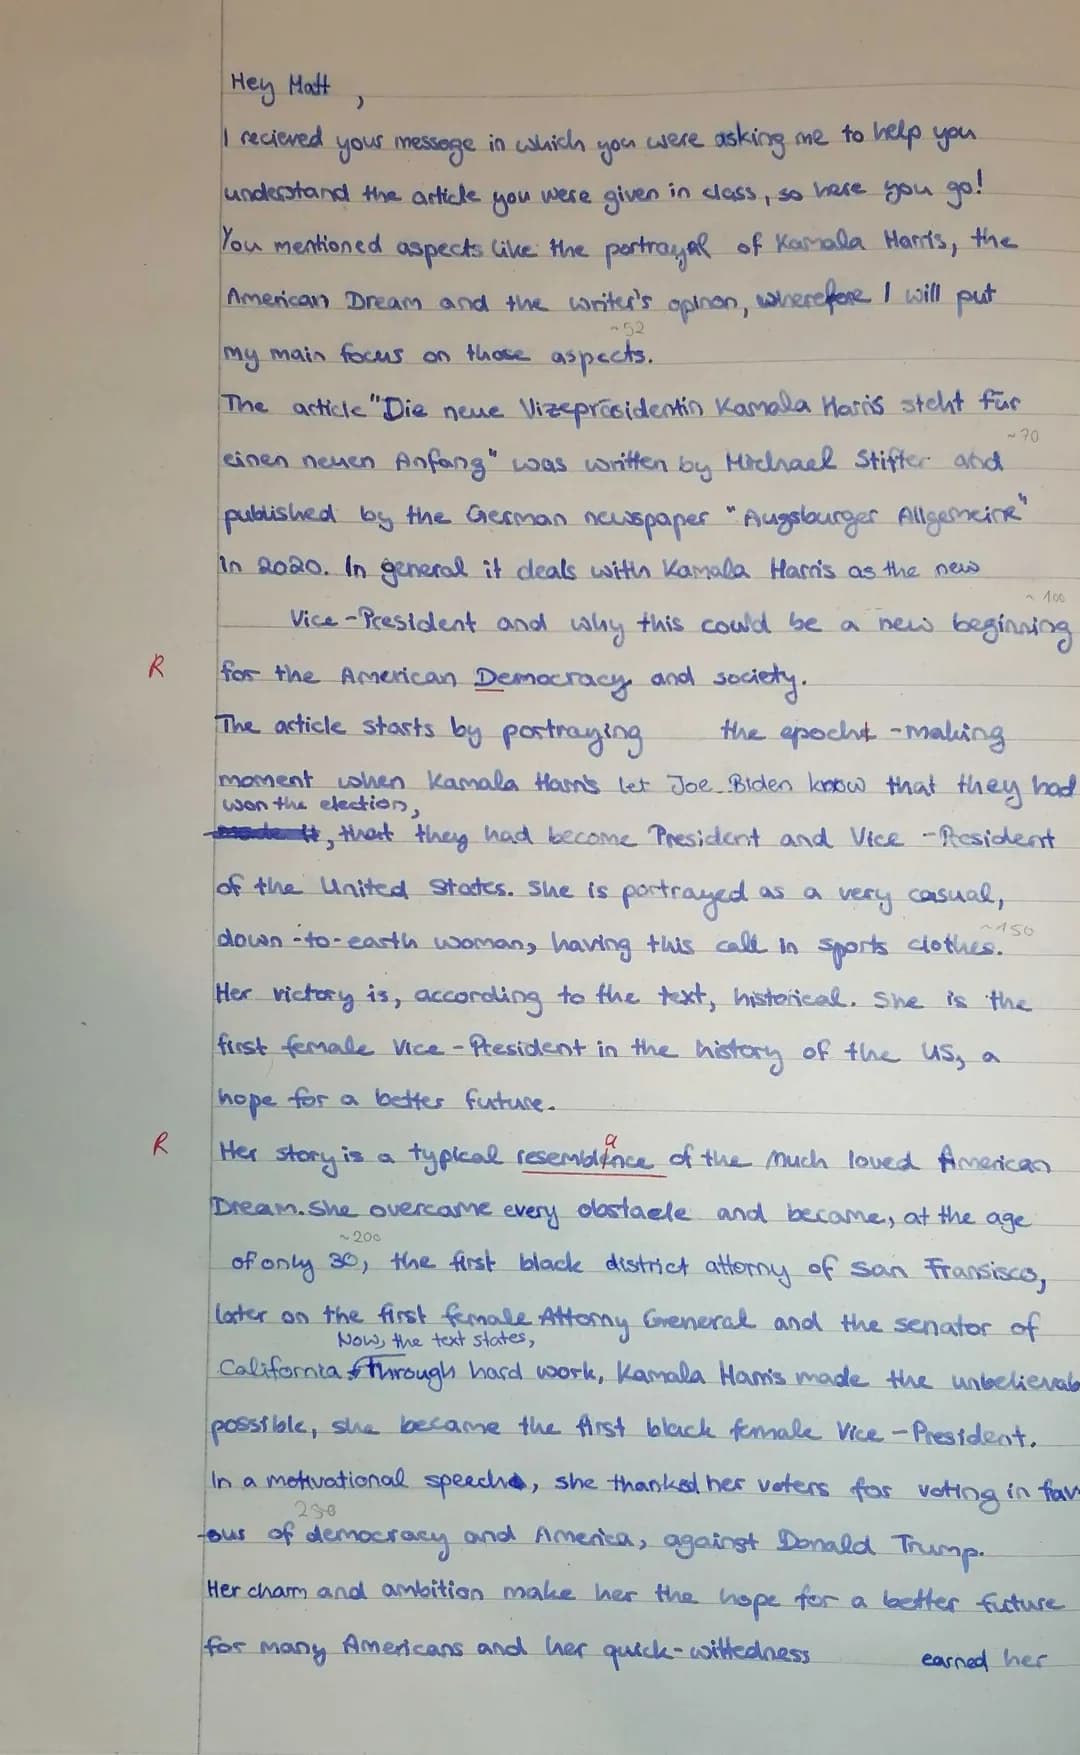 Hey Matt,
I recieved your message in which you were asking me to help you
understand the article you were given in class, so here you go!
You mentioned aspects like the portrayal of Kamala Harris, the
American Dream and the writer's opinon, wherefore I will put
~52
my main focus on those aspects.
The article "Die neue Vizepräsidentin Kamala Harris steht für
~70
einen neuen Anfang" was written by Michael Stifter and
published by the German newspaper "Augsburger Allgemeine"
in 2020. In general it deals with Kamala Harris as the new
~100
Vice-President and why this could be a new beginning
R for the American Democracy and society.
The article starts by portraying the epoch-making
moment when Kamala Harris let Joe Biden know that they had
won the election,
that they had become President and Vice-President
of the United States. She is portrayed as a very casual,
down-to-earth woman, having this call in sports clothes.
~150
Her victory is, according to the text, historical. She is the
first female Vice-President in the history of the US, a
hope for a better future.
a
R Her story is a typical resemblence of the much loved American
Dream. She overcame every obstacle and became, at the age
~200
of only 30, the first black district attorny of San Fransisco,
later on the first female Attorny General and the senator of
Now, the text states,
California through hard work, Kamala Harris made the unbelievab
possible, she became the first black female Vice-President.
In a motivational speech, she thanked her voters for voting in fav-
our of democracy and America, against Donald Trump.
Her charm and ambition make her the hope for a better future
for many Americans and her quick-wittedness earned her